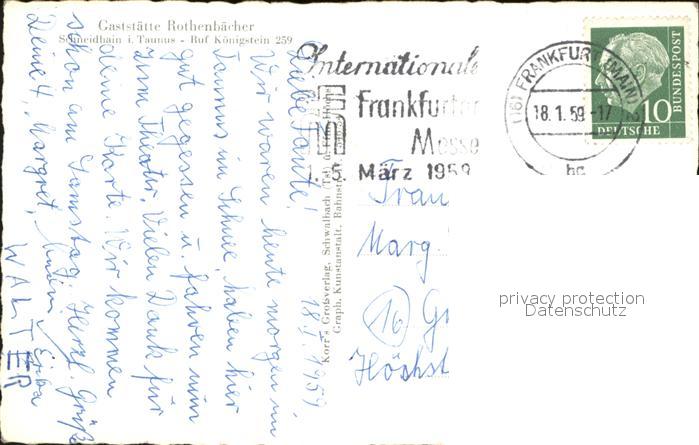 Gaststätte Rothenbächer
Schneidhain i. Taunus - Ruf Königstein 259
Liebe Tante!
Wir waren heute morgen im
Taunus im Schnee, haben hier
gut gegessen u. fahren nun
zum Theater. Vielen Dank für
deine Karte. Wir kommen
schon am Samstag. Herzl. Grüße
Deine Margret,
Erika
WALTER
18. I. 1959
Korr's Großverlag, Schwalbach
Graph. Kunstanstalt, Bahnstr
Internationale
Frankfurter
Messe
1.-5. März 1959
(16) FRANKFURT (MAIN)
18.1.59-17
hc
10
DEUTSCHE
BUNDESPOST
Frau
Marg
16
Höchst
privacy protection
Datenschutz